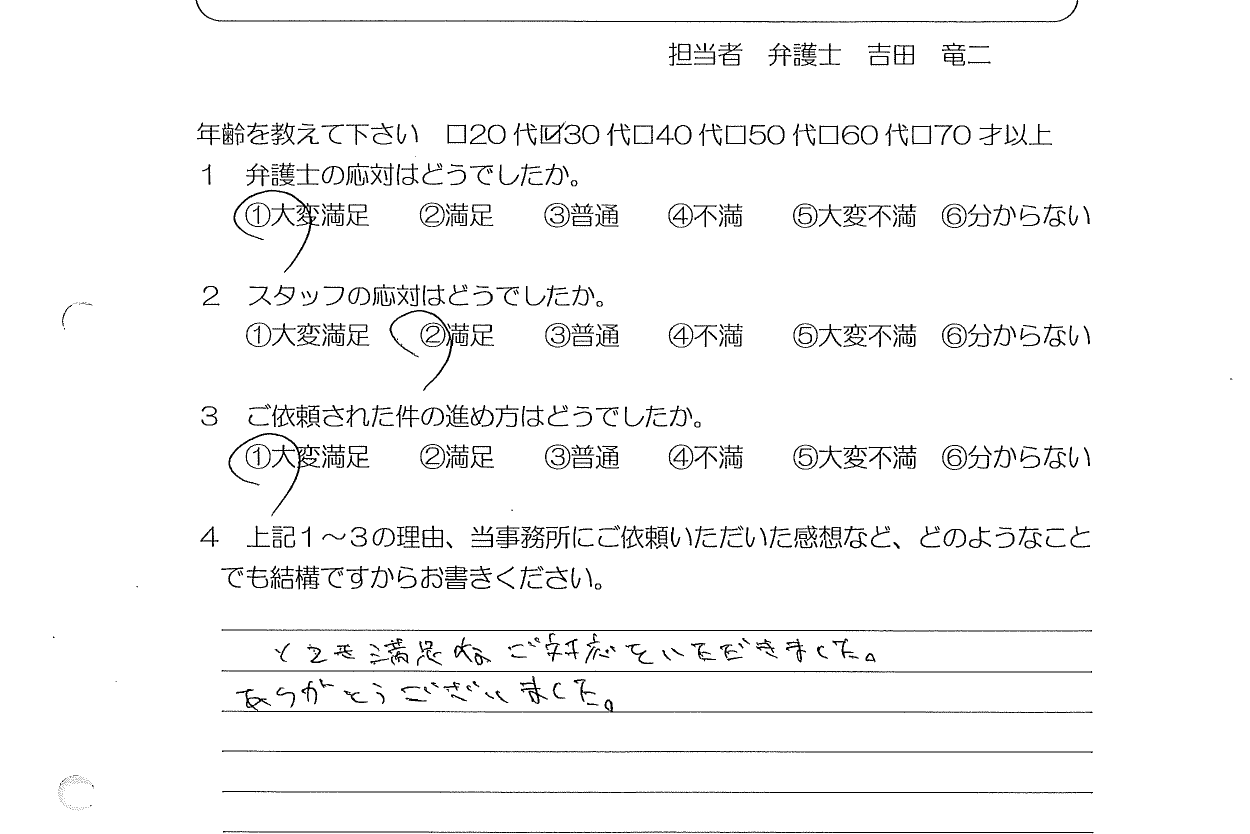 担当者　弁護士　吉田　竜二
年齢を教えて下さい　□20代☑30代□40代□50代□60代□70才以上
１　弁護士の応対はどうでしたか。
①大変満足　②満足　③普通　④不満　⑤大変不満　⑥分からない
２　スタッフの応対はどうでしたか。
①大変満足　②満足　③普通　④不満　⑤大変不満　⑥分からない
３　ご依頼された件の進め方はどうでしたか。
①大変満足　②満足　③普通　④不満　⑤大変不満　⑥分からない
４　上記１～３の理由、当事務所にご依頼いただいた感想など、どのようなこと
でも結構ですからお書きください。
とても満足なご対応をいただきました。
ありがとうございました。